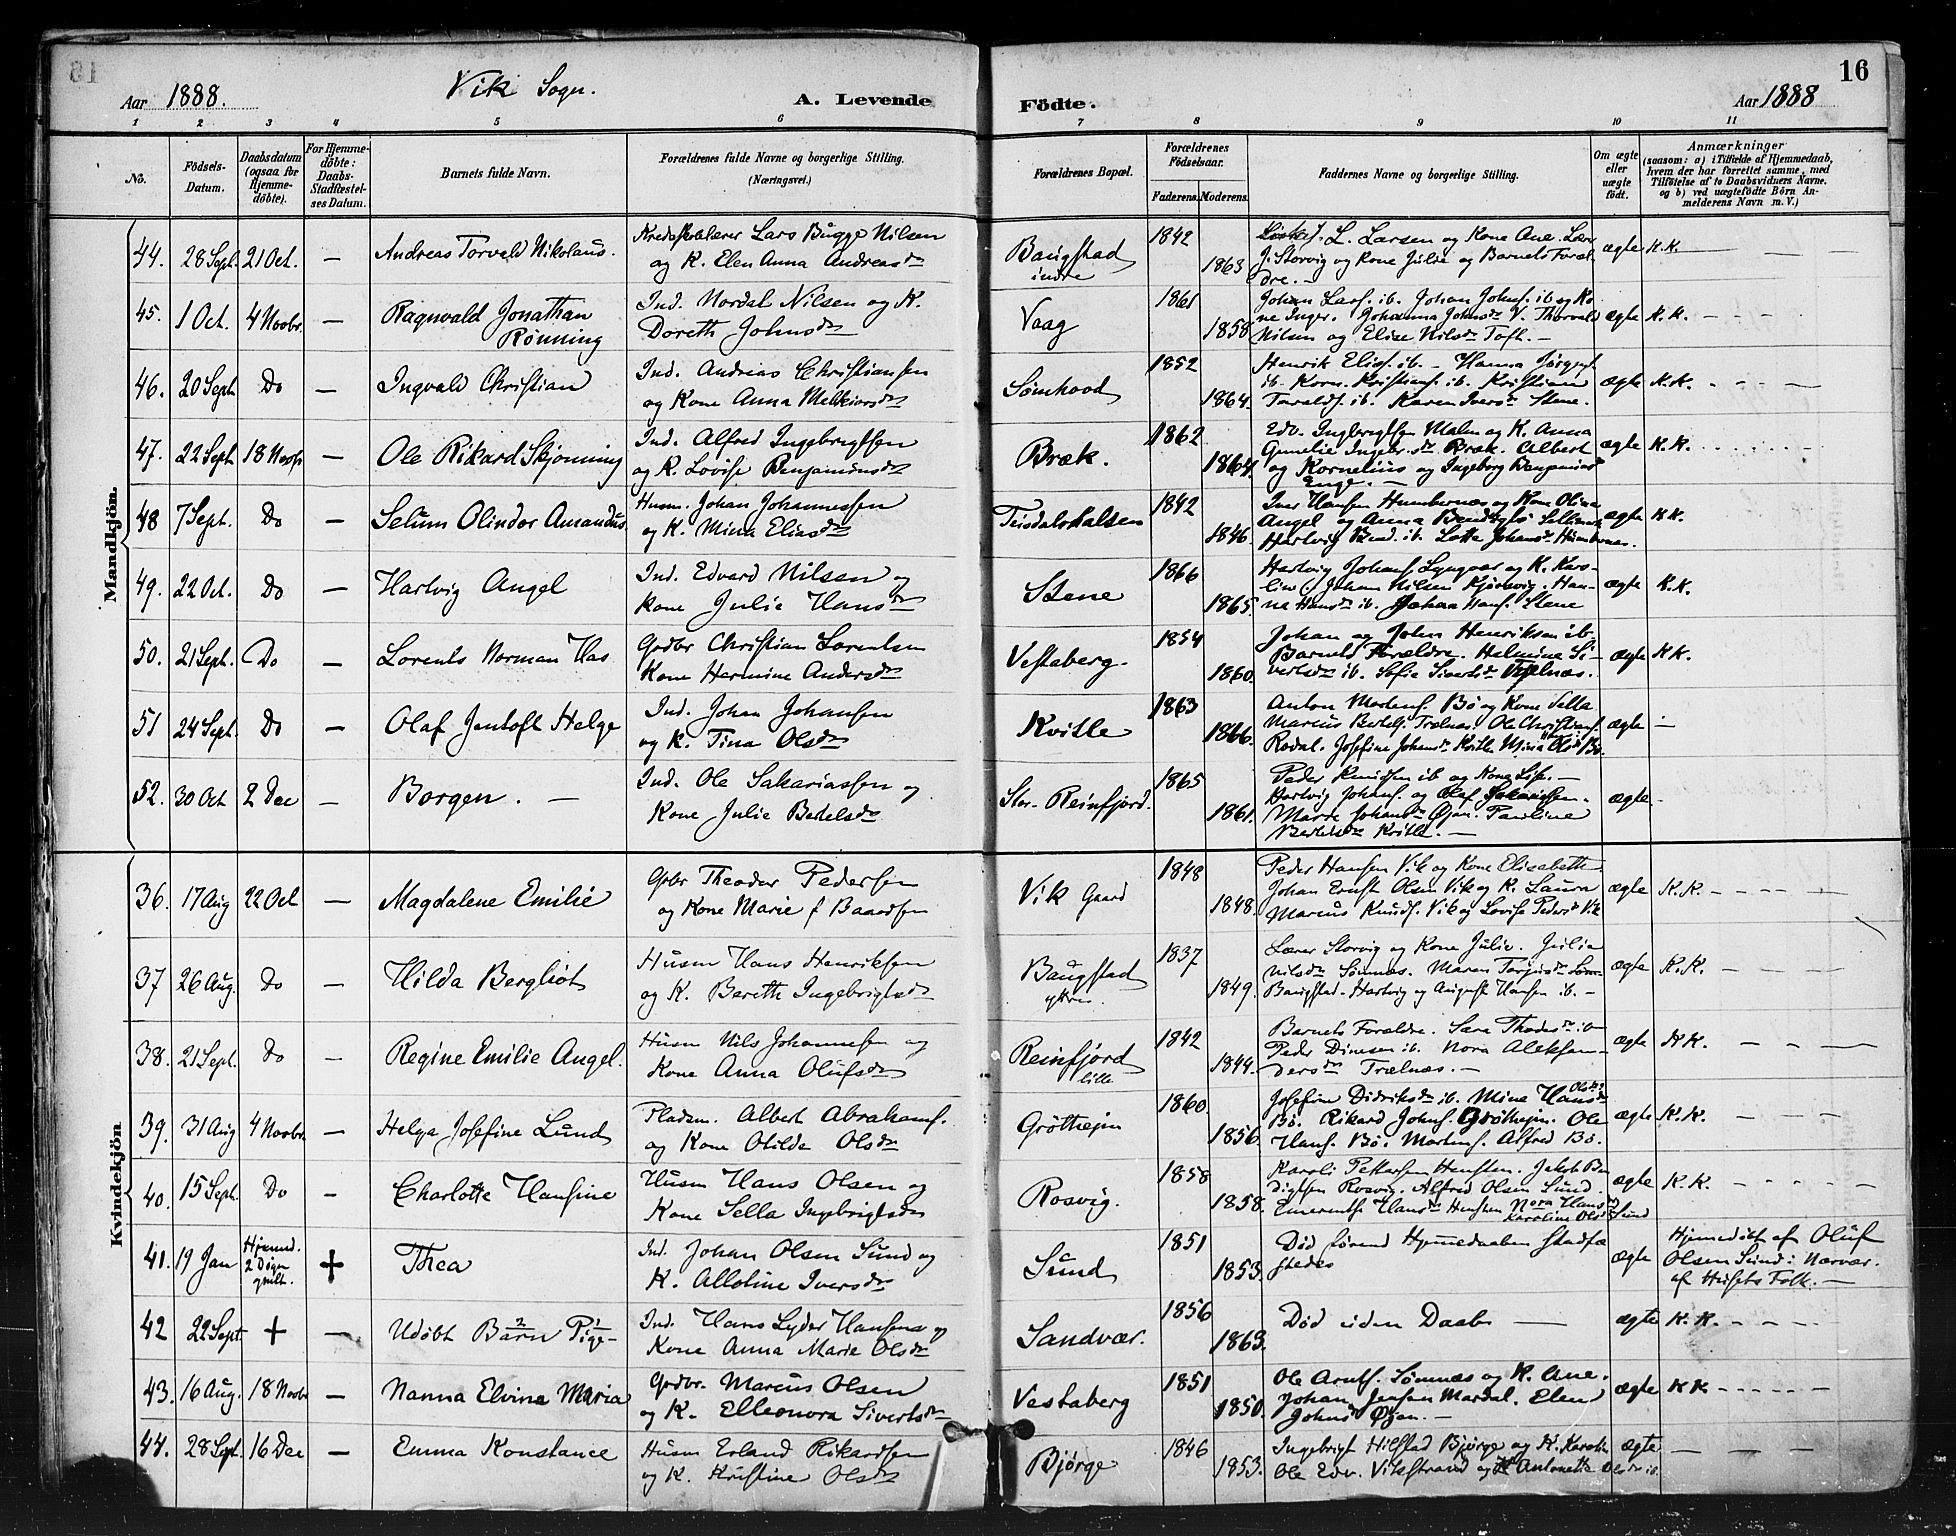 Aar 1888. Vik Sogn. A. Levende Födte. Aar 1888 16
1 2 3 4 5 6 7 8 9 10 11
No. Födsels-Datum. Daabsdatum (ogsaa for Hjemmedöbte). For Hjemmedöbte: Daabs-Stadfæstelses Datum. Barnets fulde Navn. Forældrenes fulde Navne og borgerlige Stilling. (Næringsvei.) Forældrenes Bopæl. Forældrenes Födselsaar. Faderens. Moderens. Faddernes Navne og borgerlige Stilling. Om ægte eller uægte födt. Anmærkninger (saasom: a) i Tilfælde af Hjemmedaab, hvem der har forrettet samme, med Tilföielse af to Daabsvidners Navne, og b) ved uægtefödte Börn Anmelderens Navn m. V.)
Mandkjön.
44. 28 Sept. 21 Oct. — Andreas Torvald Nikolaus. Lars Bugge Nilsen
og K. Elen Anna Andreasdr
Baugstad indre 1842 1863 L. Larsen og Kone Ane. Lær
J. Storvig og Kone Julie og Barnets Foræl
dre. — ægte K.K. —
45. 1 Oct. 4 Novbr. — Ragnvald Jonathan Rønning Ind. Nordal Nilsen og K.
Doreth Johnsdr
Vaag 1861 1858 Johan Larsf. ib. Johan Johnsf. ib og Ko
ne Inger. Johanna Johnsdr V. Thorvald
Nilsen og Elise Nilsdr Toft. — ægte K.K. —
46. 20 Sept Do — Ingvald Christian Ind. Andreas Christiansen
og Kone Anna Melkiorsdr
Sømhovd 1852 1864. Henrik Eliasf. ib. — Hanna Jørgensf
ib. Korn. Kristiansf. ib. Kristian
Taraldsf. ib. Karen Iversdr Stene. ægte K.K. —
47. 22 Sept 18 Novbr — Ole Rikard Skjønning Ind. Alfred Ingebrigtsen
og K. Lovise Benjaminsdr
Bræk. 1862 1864. Edv. Ingebrigtsen Malm og K. Anna
Gunelie Ingebr.dr Bræk. Albert
og Kornelius og Ingeborg Benjamins
Enge. — ægte K.K.
48 7 Sept. Do — Selum Olindor Amandus. Husm. Johan Johannessen
og K. Mina Eliasdr
Teisdalshalsen 1842 1846. Iver Hansen Humbernæs og Kone Olina
Angel og Anna
Hartvig Bend. ib. Lotte Johansdr Humbernæs. ægte K.K.
49. 22 Oct. Do — Hartvig Angel Ind. Edvard Nilsen og
Kone Julie Hansdr
Stene 1866 1865. Hartvig Johansf. Lyngvær og K. Karo-
line. Johan Nilsen Kjørkvig. Han-
na Hansdr ib. Johan Hansf. Stene ægte K.K.
50. 21 Sept. Do — Lorents Norman Has Grdbr Christian Lorentsen
Kone Hermine Andersdr
Vestaberg. 1854 1860. Johan og John Henriksen ib.
Barnets Forældre. Helmine Si-
vertsdr ib. Sofie Sivertsdr ægte K.K.
51 24 Sept. Do — Olaf Jentoft Helge Ind. Johan Johansen
og K. Tina Olsdr
Kvitle 1863 1866. Anton Martensf. Bø og Kone Sella
Marcus Bertelsf. Trælnæs. Ole Christiansf.
Rodal. Josefine Johansdr Kvitle Mina Olsdr Bø. ægte —
52. 30 Oct 2 Dec — Borgen. — Ind. Ole Sakariassen og
Kone Julie Bertelsdr
Stor-Reinfjord. 1865 1861. Peder Knudsen ib og Kone Lise. —
Hartvig Johansf. og Olaf Sakariassen.
Marie Johansdr Øjan. Pauline
Bertelsdr Kvitle. — ægte
Kvindekjön
36. 17 Aug 22 Oct — Magdalene Emilie Grbr Theodor Pedersen
og Kone Marie f Baardsen
Vik Gaard 1848 1848. Peder Hansen Vik og Kone Elisabeth.
Johan Ernst Olsen Vik og K. Laura
Marcus Knudsf. Vik og Lovise Pedersdr Vik ægte K.K. —
37 26 Aug. Do — Hilda Bergliot Husm Hans Henriksen
og K. Bereth Ingebrigtsdr
Baugstad ytre. 1837 1849. Lærer Storvig og Kone Julie. Julia
Nilsdr Sømnæs. Maren
Baugstad. Hartvig og August Hansen ib. — ægte K.K. —
38. 21 Sept. Do — Regine Emilie Angel. Husm Nils Johannesen og
Kone Anna Olufsdr
Reinfjord lille 1842 1844. Barnets Forældre. Sara Thodesdr ib
Peder Dinesen ib. Nora Aleksan-
dersdr Trælnæs. — ægte K.K. —
39. 31 Aug 4 Novbr. — Helga Josefine Lund Pladsm. Albert Abrahamsf.
og Kone Otilde Olsdr
Grøttheim 1860. 1856. Josefine Didriksdr ib. Mina Hansdr
Bø. Rikard Johnsf. Grøtheim. Ole
Hansf. Bø. Martensf. Alfred Bø. ægte K.K. —
40. 15 Sept. Do — Charlotte Hansine Husm Hans Olsen og
Kone Sella Ingebrigtsdr
Rosvig. 1858 1858. Karoli Pettersen Hensten. Jakob Ben
digtsen Rosvig. Alfred Olsen Sund.
Emerentse Hansdr Hensten Nora Hansdr
Karoline Olsdr Sund ægte K.K. —
41. 19 Jan Hjemmd. 2 Døgn gmlt. + Thea Ind. Johan Olsen Sund og
K. Allotine Iversdr
Sund 1851 1853. Død førend Hjemmedaaben stadfæ
stedes ægte Hjemmedøbt af Oluf
Olsen Sund: Nærvær.
af Husets Folk. —
42 22 Sept + — Udøbt Barn Pige Ind. Hans Lyder Hansen og
Kone Anna Maria Olsdr
Sandvær. 1856 1863. Død uden Daab — ægte K.K. —
43. 16 Aug. 18 Novbr — Nanna Elvine Maria Grdbr. Marcus Olsen
og K. Elleonora Sivertsdr
Vestaberg 1851 1850. Ole Arntsf. Sømnæs og K. Ane.
Johan Jensen Mardal. Elen
Johnsdr Øjan. — ægte K.K. —
44. 28 Sept. 16 Dec — Emma Konstance Husm Erland Rikardsen
og K. Kristine Olsdr
Bjørge 1846 1853. Ingebrigt Hilstad Bjørge og K. Karolin
Ole Edv. Vikstrand og K Antonette Olsdr ib. ægte —